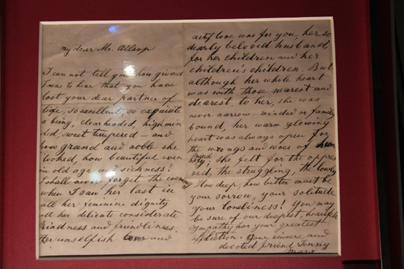 My dear Mr. Allsop
I can not tell you how grieved
I was to hear that you have
lost your dear partner of
life, so excellent, so exquisite
a being, clearheaded high min
ded, sweet tempered — and
how grand and noble she
looked, how beautiful even
in old age and sickness!
I shall never forget the
when I saw her last in
all her feminine dignity
all her delicate considerate
kindness and friendliness.
Her unselfish love and
love was for you, her so
dearly beloved husband
for her children and her
children's children. But
although her whole heart
was with those nearest and
dearest to her, she was
never narrow-minded in family
bound, her warm glowing
heart was always open for
the wrongs and woes of
she felt for the oppres
sed, the struggling, the lonely
How deep, how bitter must be
your sorrow, your solitude
your loneliness! You may
be sure of our deepest, heartfelt
sympathy her your greatest
affliction. Your sincere and
devoted friend Jenny
Marx